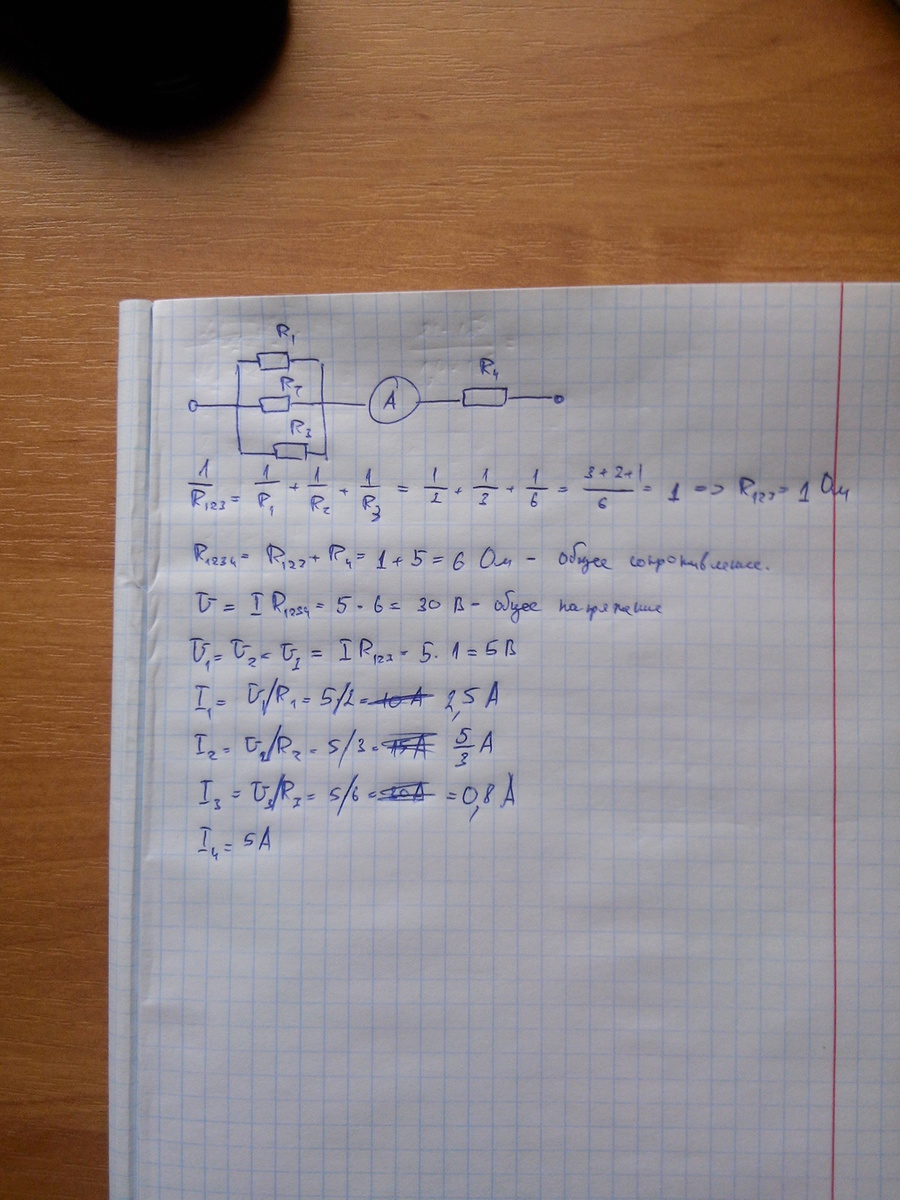 R1
R2
R3
A
R4
1/R123 = 1/R1 + 1/R2 + 1/R3 = 1/2 + 1/3 + 1/6 = (3+2+1)/6 = 1 => R123 = 1 Ом
R1234 = R123 + R4 = 1 + 5 = 6 Ом - общее сопротивление.
U = I R1234 = 5 · 6 = 30 В - общее напряжение
U1 = U2 = U3 = I R123 = 5 · 1 = 5 В
I1 = U1/R1 = 5/2 = 10 А 2,5 А
I2 = U2/R2 = 5/3 = 15 А 5/3 А
I3 = U3/R3 = 5/6 = 30 А = 0,8 А
I4 = 5 А